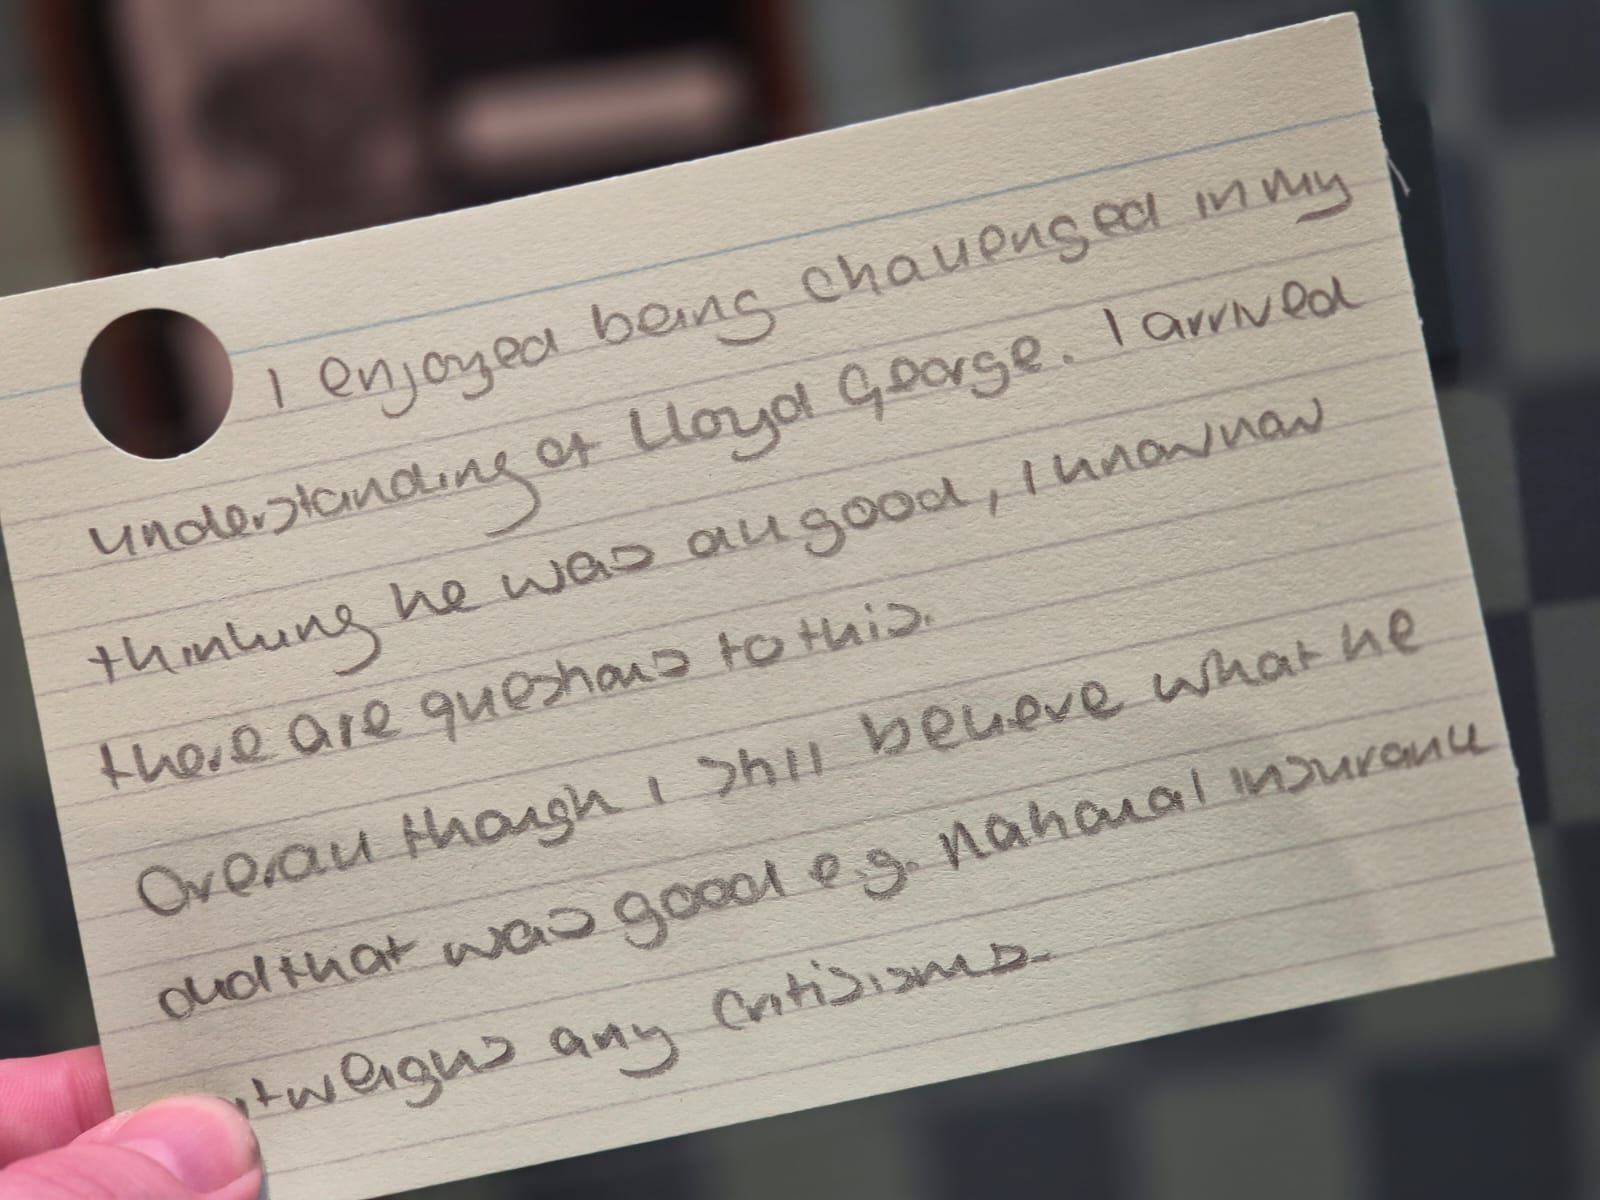 I enjoyed being challenged in my
understanding of Lloyd George. I arrived
thinking he was all good, I know now
there are questions to this.
Overall though I still believe what he
did that was good e.g. National insurance
outweighs any critisisms.